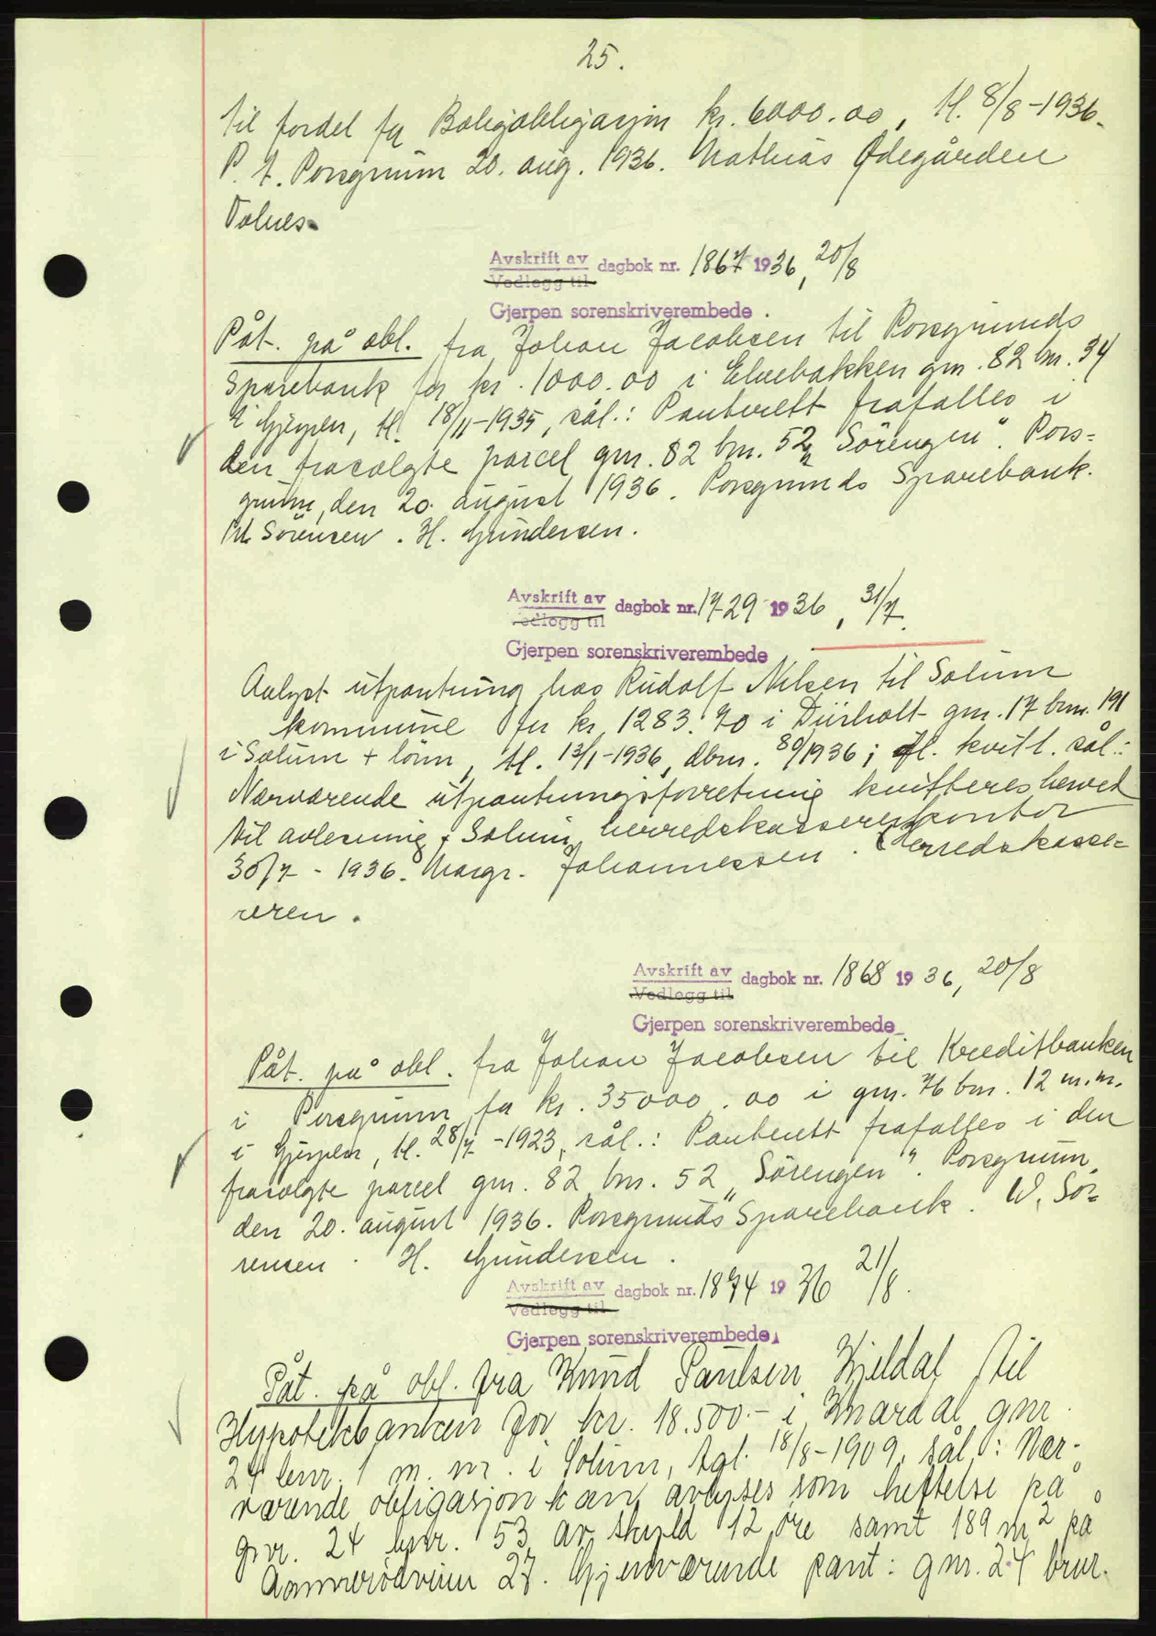 25.
til fordel for Boligobligasjon kr. 6000.00, tl. 8/8-1936.
P. t. Porsgrunn 20. aug. 1936. Mathias Ødegården
Volnes.
Avskrift av dagbok nr. 1867 1936, 20/8
Vedlegg til
Gjerpen sorenskriverembede.
Påt. på obl. fra Johan Jacobsen til Porsgrunds
Sparebank for kr. 1000.00 i Elvebakken gnr. 82 bnr. 34
i Gjerpen, tl. 18/11-1935, sål.: Panterett frafalles i
den frasolgte parcel gnr. 82 bnr. 52 "Sörengen". Pors=
grunn, den 20. august 1936. Porsgrunds Sparebank.
W. Sörensen. H. Gundersen.
Avskrift av dagbok nr. 1729 1936, 31/7.
Vedlegg til
Gjerpen sorenskriverembede
Avlyst utpantning hos Rudolf Nilsen til Solum
kommune for kr. 1283.70 i Dürholt gnr. 17 bnr. 191
i Solum + lönn, tl. 13/1-1936, dbnr. 80/1936; tl. kvitt. sål.:
Nærværende utpantningsforretning kvitteres herved
til avlesning. Solum herredskassererkontor
30/7 - 1936. Margr. Johannessen. Herredskasse=
reren.
Avskrift av dagbok nr. 1868 1936, 20/8
Vedlegg til
Gjerpen sorenskriverembede
Påt. på obl. fra Johan Jacobsen til Kreditbanken
i Porsgrunn for kr. 35000.00 i gnr. 76 bnr. 12 m.m.
i Gjerpen, tl. 28/7-1923, sål.: Panterett frafalles i den
frasolgte parcel gnr. 82 bnr. 52 "Sörengen". Porsgrunn,
den 20. august 1936. Porsgrunds Sparebank. W. Sör=
rensen. H. Gundersen.
Avskrift av dagbok nr. 1874 1936 21/8.
Vedlegg til
Gjerpen sorenskriverembede.
Påt. på obl. fra Knud Paulsen Kjeldal til
Hypotekbanken for kr. 18.500.- i Knardal gnr.
24 bnr. 1 m. m. i Solum, tgl. 18/8-1909, sål.: Nær-
værende obligasjon kan avlyses som heftelse på
gnr. 24 bnr. 53 av skyld 12 öre samt 189 m2 på
27. Gjenværende pant: gnr. 24 bnr.